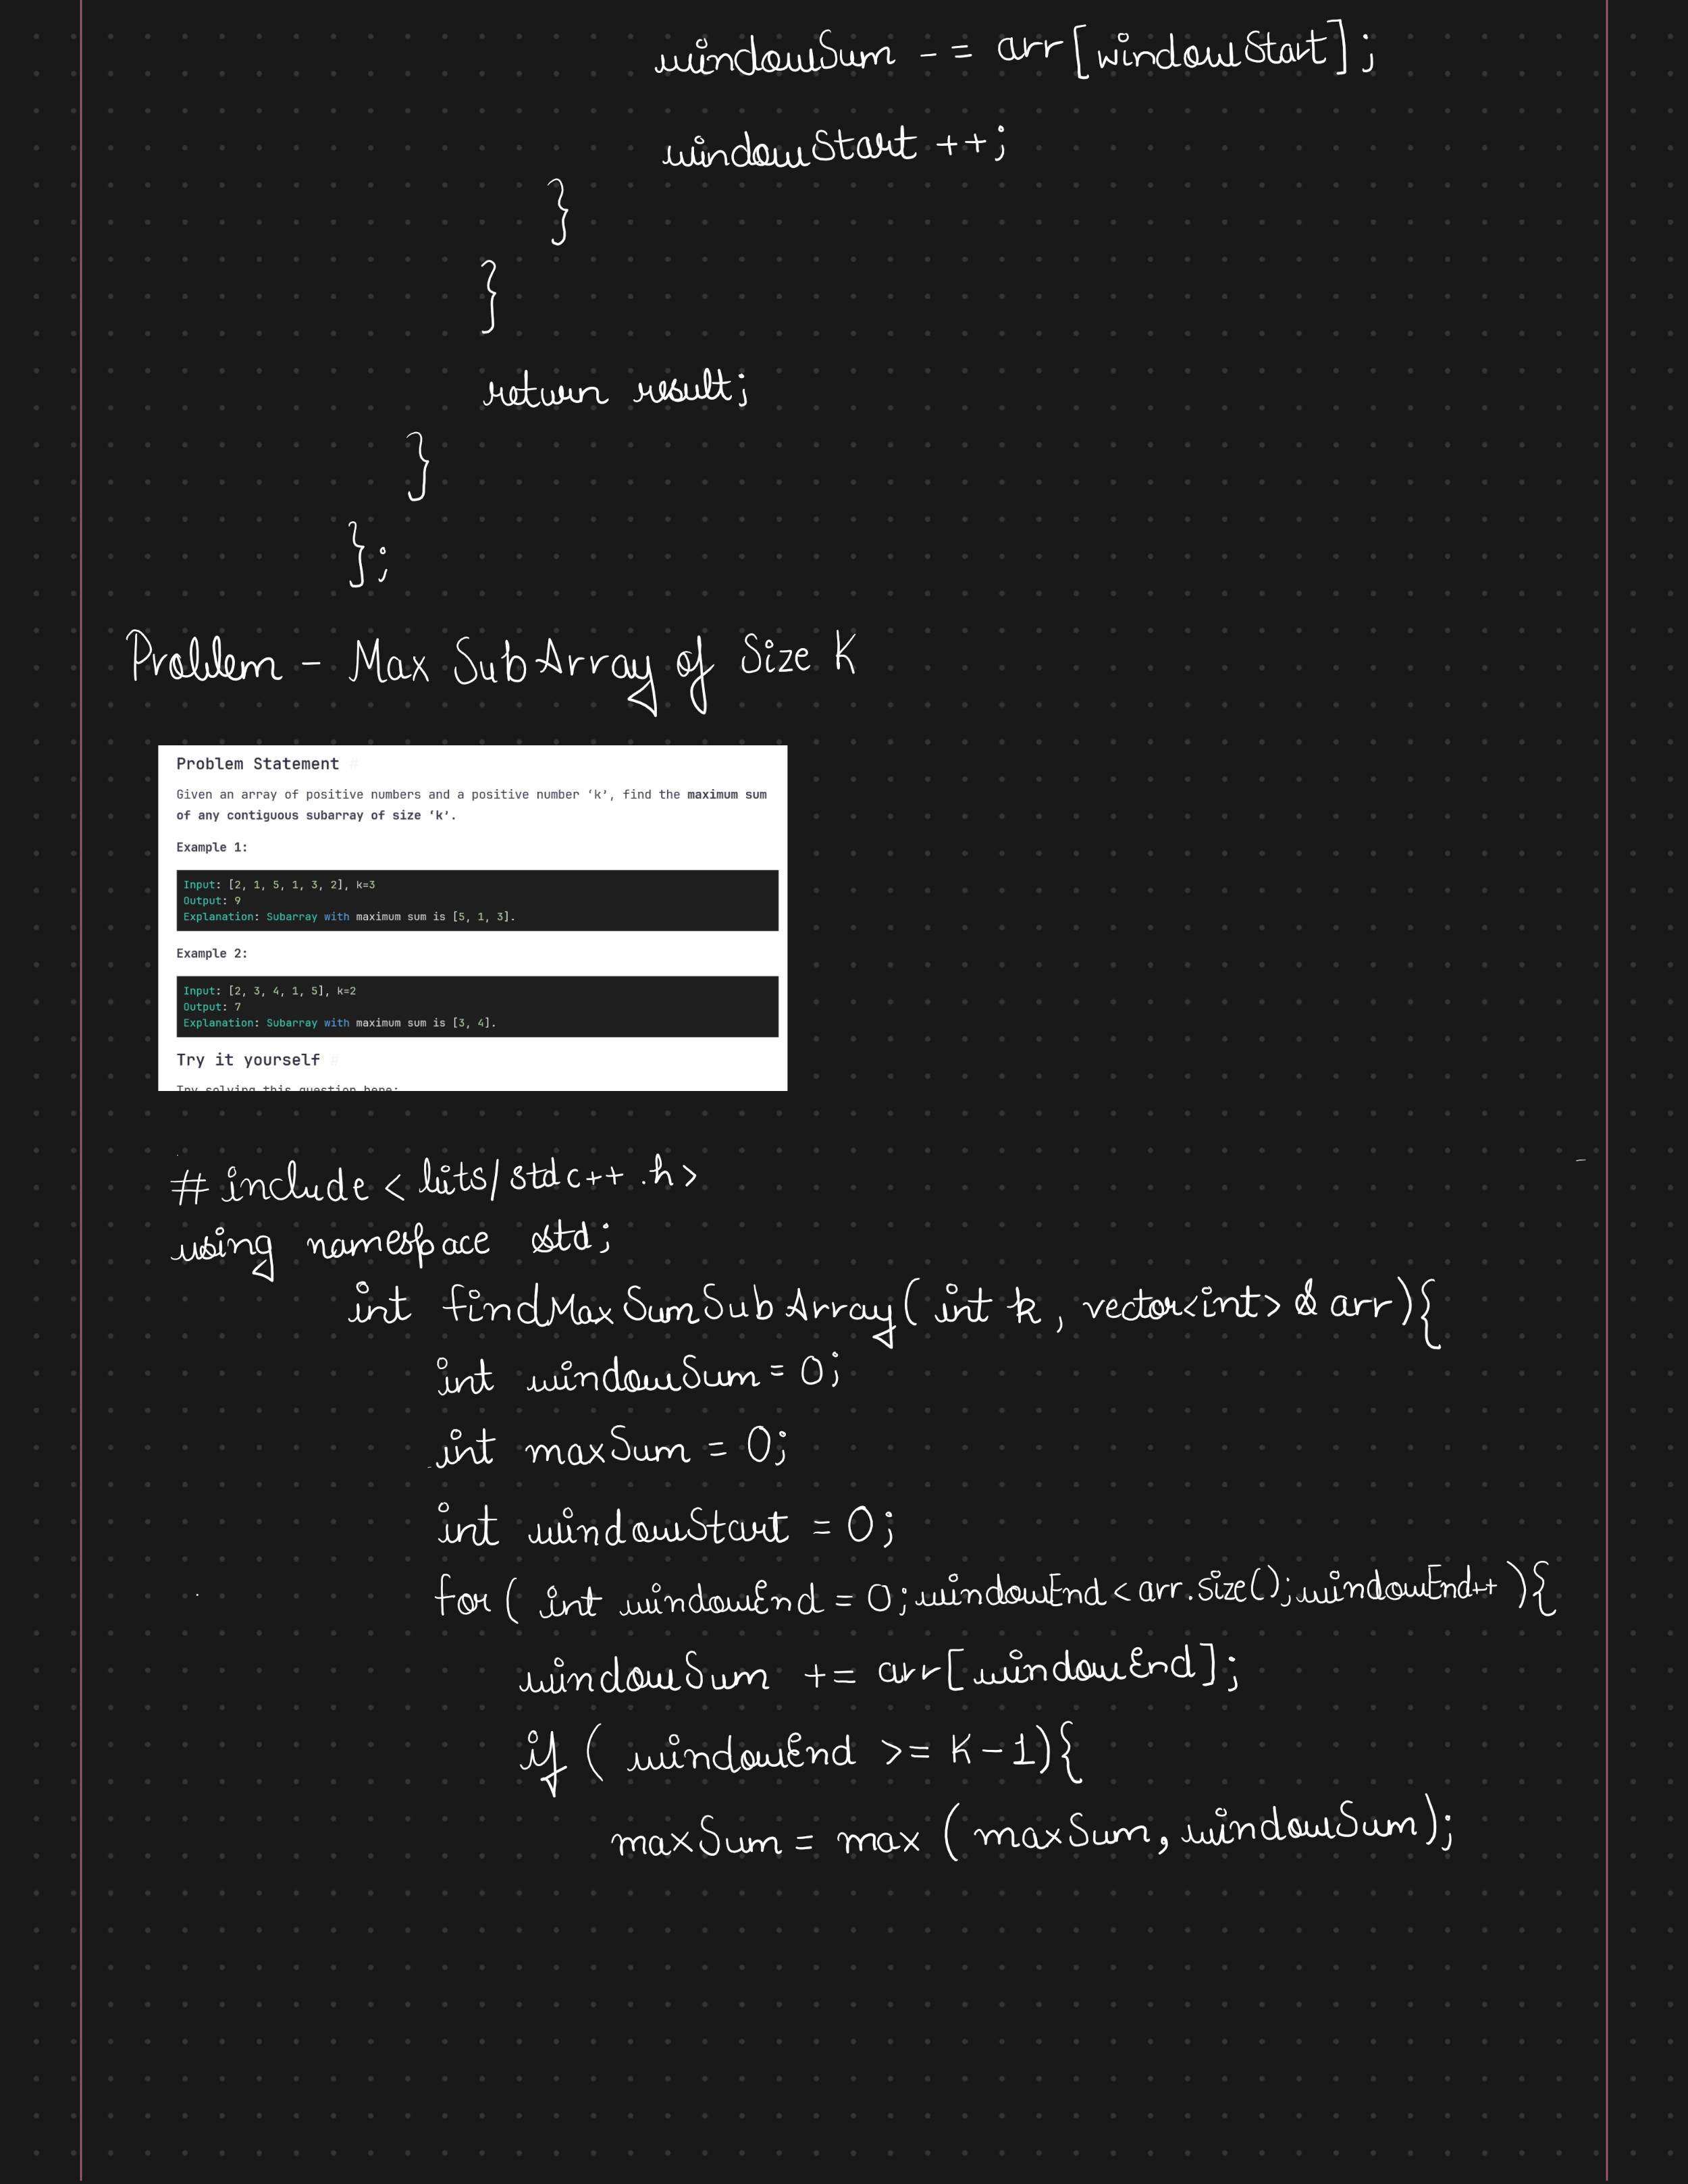 windowSum -= arr[windowStart];
windowStart ++;
}
}
return result;
}
};
Problem - Max SubArray of Size K
Problem Statement #
Given an array of positive numbers and a positive number ‘k’, find the maximum sum
of any contiguous subarray of size ‘k’.
Example 1:
Input: [2, 1, 5, 1, 3, 2], k=3
Output: 9
Explanation: Subarray with maximum sum is [5, 1, 3].
Example 2:
Input: [2, 3, 4, 1, 5], k=2
Output: 7
Explanation: Subarray with maximum sum is [3, 4].
Try it yourself #
Try solving this question here:
# include < bits/stdc++ .h>
using namespace std;
int findMaxSumSubArray( int k, vector<int> & arr){
int windowSum = 0;
int maxSum = 0;
int windowStart = 0;
for( int windowEnd = 0; windowEnd < arr.size(); windowEnd++ ){
windowSum += arr[windowEnd];
if ( windowEnd >= K-1){
maxSum = max ( maxSum, windowSum);